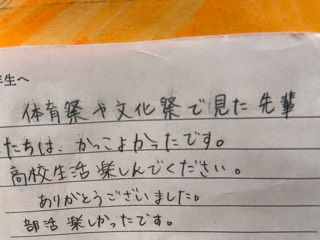 年生へ
体育祭や文化祭で見た先輩
たちは、かっこよかったです。
高校生活楽しんでください。
ありがとうございました。
部活楽しかったです。